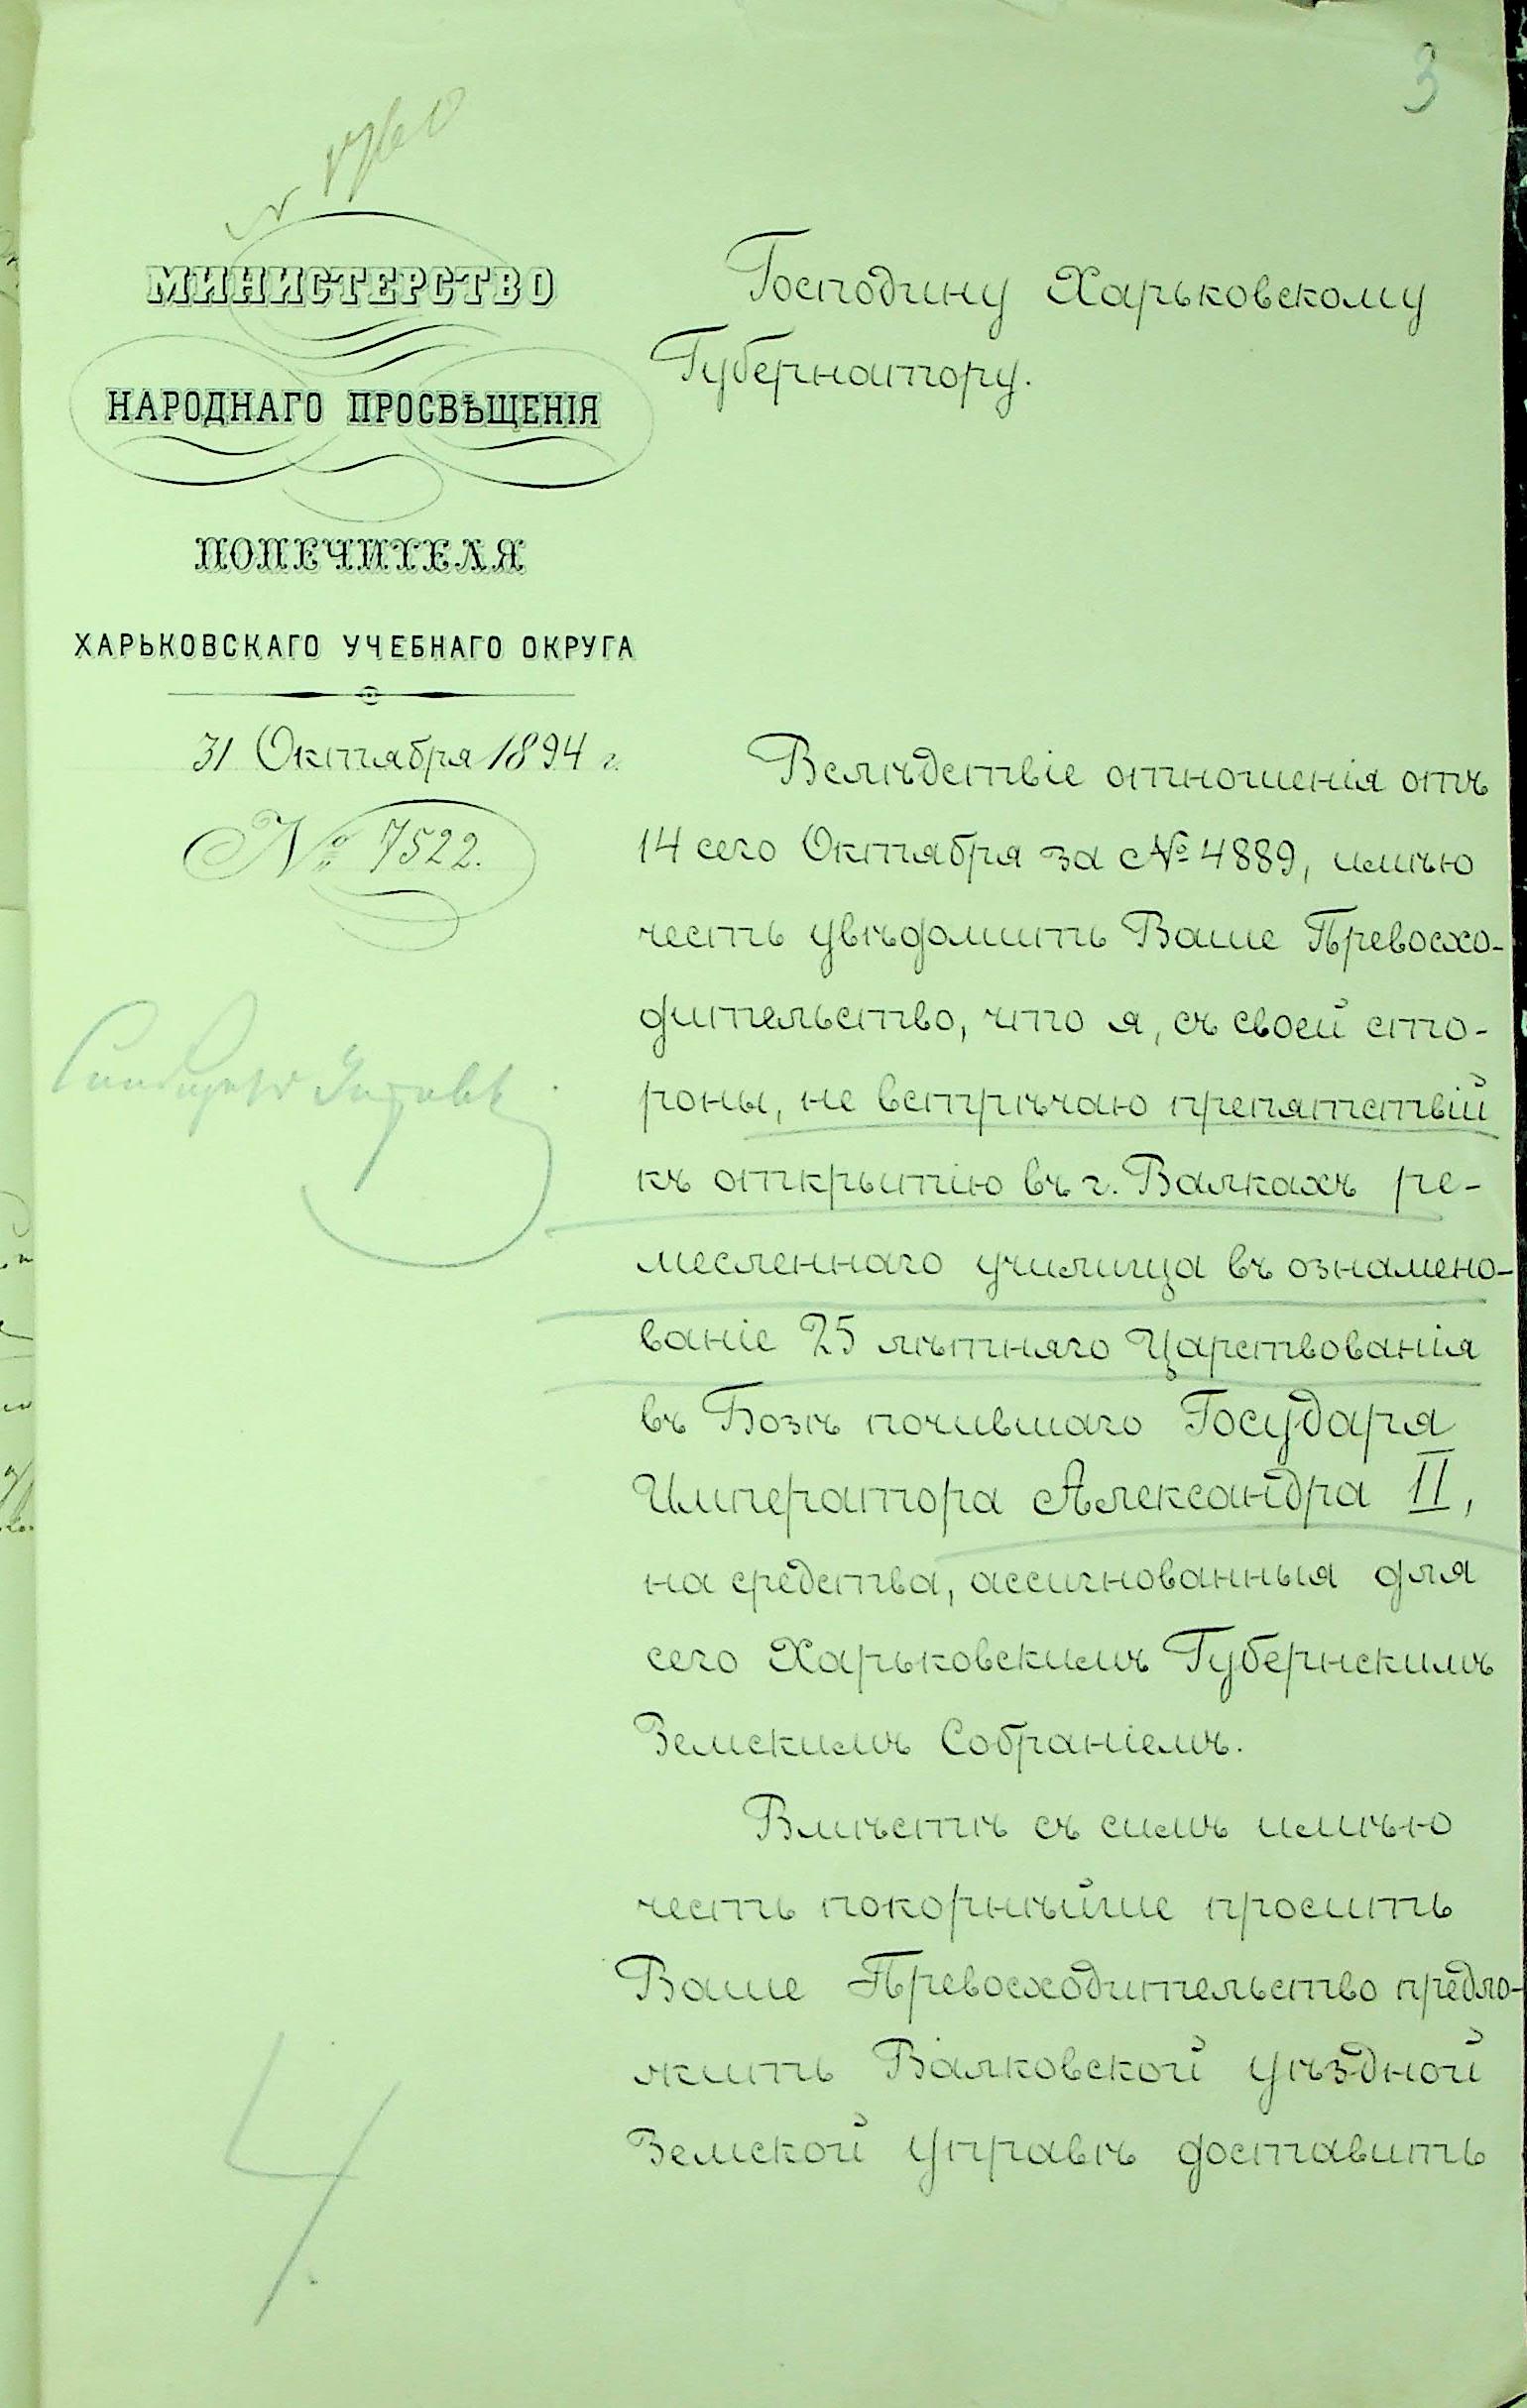 3
МИНИСТЕРСТВО
НАРОДНАГО ПРОСВѢЩЕНІЯ
ПОПЕЧИТЕЛЯ
ХАРЬКОВСКАГО УЧЕБНАГО ОКРУГА
31 Октября 1894 г.
№ 7522.
Господину Харьковскому
Губернатору.
Вслѣдствіе отношенія отъ
14 сего Октября за № 4889, имѣю
честь увѣдомить Ваше Превосхо-
дительство, что я, съ своей сто-
роны, не встрѣчаю препятствій
къ открытію въ г. Валкахъ ре-
месленнаго училища въ ознамено-
ваніе 25 лѣтняго Царствованія
въ Бозѣ почившаго Государя
Императора Александра II,
на средства, ассигнованныя для
сего Харьковскимъ Губернскимъ
Земскимъ Собраніемъ.
Вмѣстѣ съ симъ имѣю
честь покорнѣйше просить
Ваше Превосходительство предло-
жить Валковской уѣздной
Земской управѣ доставить
4